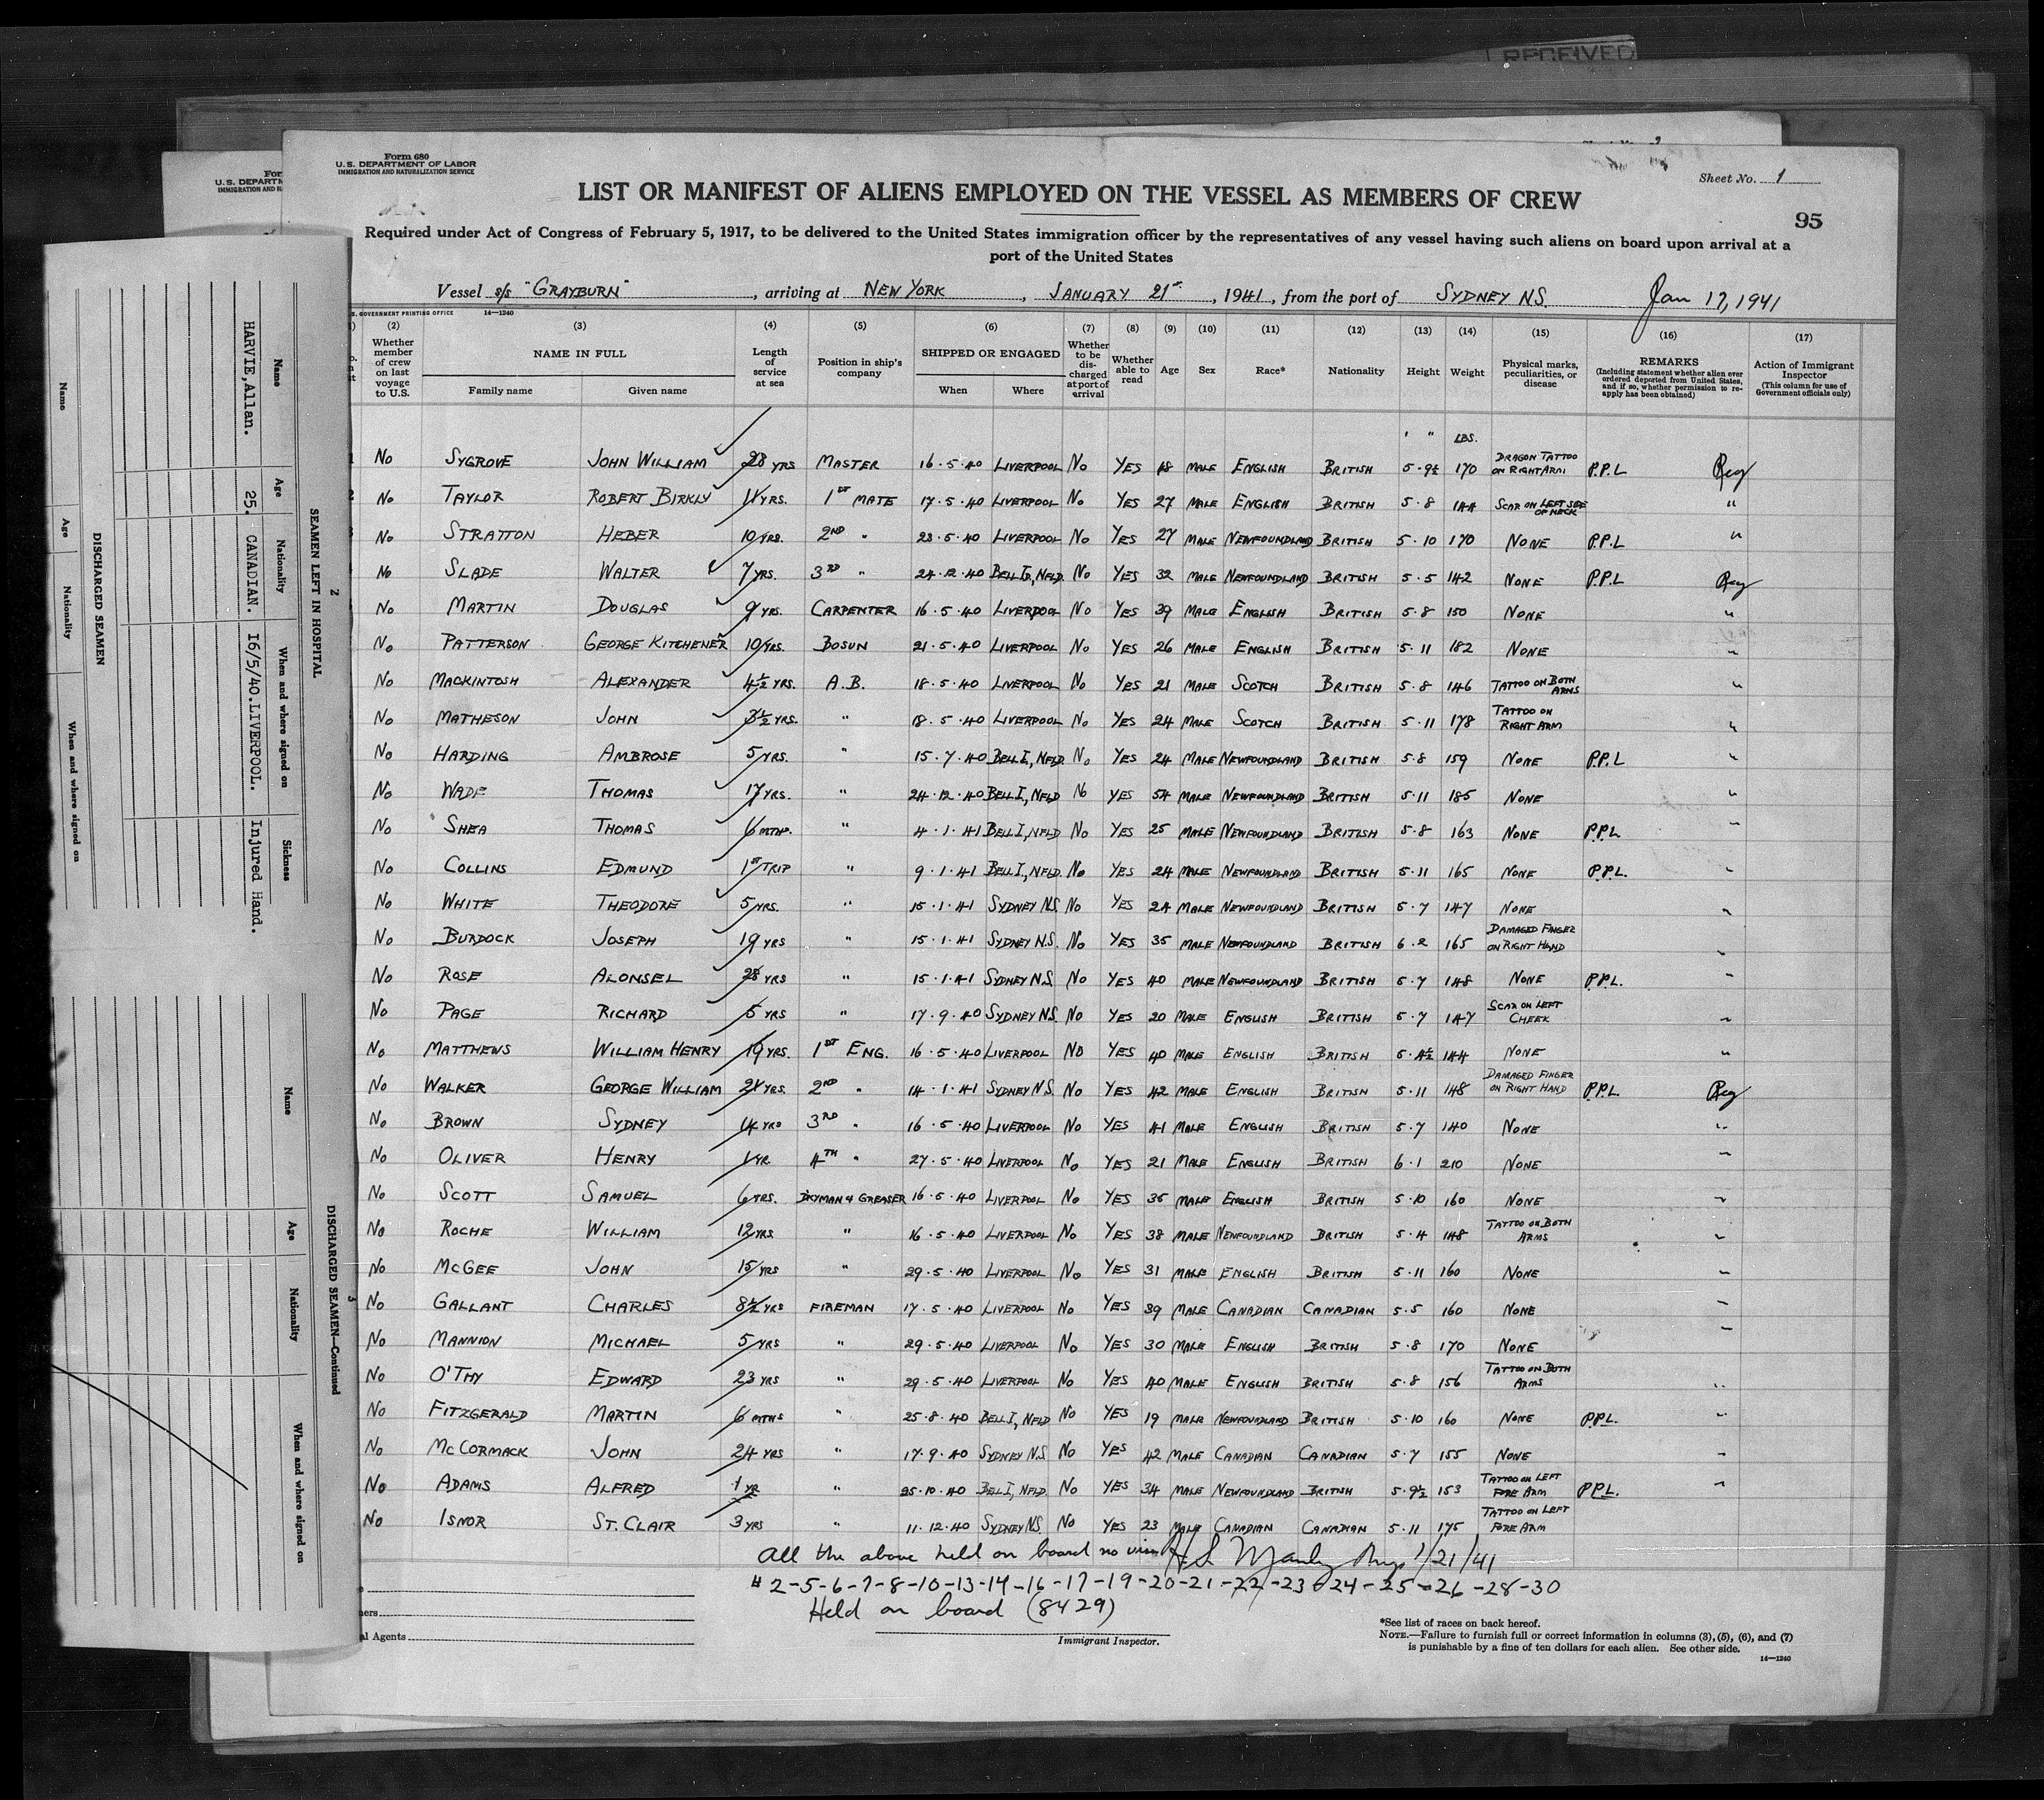 RECEIVED
Form 680
U.S. DEPARTMENT OF LABOR
IMMIGRATION AND NATURALIZATION SERVICE
Sheet No. 1
LIST OR MANIFEST OF ALIENS EMPLOYED ON THE VESSEL AS MEMBERS OF CREW
95
Required under Act of Congress of February 5, 1917, to be delivered to the United States immigration officer by the representatives of any vessel having such aliens on board upon arrival at a
port of the United States
Vessel s/s "GRAYBURN", arriving at NEW YORK, JANUARY 21st, 1941, from the port of SYDNEY N.S. Jan 17, 1941
(2) (3) (4) (5) (6) (7) (8) (9) (10) (11) (12) (13) (14) (15) (16) (17)
Whether member of crew on last voyage to U.S. NAME IN FULL Family name Given name Length of service at sea Position in ship's company SHIPPED OR ENGAGED When Where Whether to be discharged at port of arrival Whether able to read Age Sex Race* Nationality Height Weight Physical marks, peculiarities, or disease REMARKS (Including statement whether alien ever ordered deported from United States, and if so, whether permission to reapply has been obtained) Action of Immigrant Inspector (This column for use of Government officials only)
' " LBS.
No SYGROVE JOHN WILLIAM 28 YRS MASTER 16.5.40 LIVERPOOL No YES 48 MALE ENGLISH BRITISH 5.9½ 170 DRAGON TATTOO ON RIGHT ARM P.P.L Reg
No TAYLOR ROBERT BIRKLY 11 YRS. 1ST MATE 17.5.40 LIVERPOOL No YES 27 MALE ENGLISH BRITISH 5.8 144 SCAR ON LEFT SIDE OF NECK "
No STRATTON HEBER 10 YRS. 2ND " 23.5.40 LIVERPOOL No YES 27 MALE NEWFOUNDLAND BRITISH 5.10 170 NONE P.P.L "
No SLADE WALTER 7 YRS. 3RD " 24.12.40 BELL I, NFLD. No YES 32 MALE NEWFOUNDLAND BRITISH 5.5 142 NONE P.P.L Reg
No MARTIN DOUGLAS 9 YRS. CARPENTER 16.5.40 LIVERPOOL No YES 39 MALE ENGLISH BRITISH 5.8 150 NONE "
No PATTERSON GEORGE KITCHENER 10 YRS. BOSUN 21.5.40 LIVERPOOL No YES 26 MALE ENGLISH BRITISH 5.11 182 NONE "
No MACKINTOSH ALEXANDER 4½ YRS. A.B. 18.5.40 LIVERPOOL No YES 21 MALE SCOTCH BRITISH 5.8 146 TATTOO ON BOTH ARMS "
No MATHESON JOHN 3½ YRS. " 18.5.40 LIVERPOOL No YES 24 MALE SCOTCH BRITISH 5.11 178 TATTOO ON RIGHT ARM "
No HARDING AMBROSE 5 YRS. " 15.7.40 BELL I., NFLD. No YES 24 MALE NEWFOUNDLAND BRITISH 5.8 159 NONE P.P.L "
No WADE THOMAS 17 YRS. " 24.12.40 BELL I, NFLD No YES 54 MALE NEWFOUNDLAND BRITISH 5.11 185 NONE "
No SHEA THOMAS 6 MTHS. " 4.1.41 BELL I, NFLD No YES 25 MALE NEWFOUNDLAND BRITISH 5.8 163 NONE P.P.L. "
No COLLINS EDMUND 1ST TRIP " 9.1.41 BELL I, NFLD. No YES 24 MALE NEWFOUNDLAND BRITISH 5.11 165 NONE P.P.L. "
No WHITE THEODORE 5 YRS. " 15.1.41 SYDNEY N.S. No YES 24 MALE NEWFOUNDLAND BRITISH 5.7 147 NONE "
No BURDOCK JOSEPH 19 YRS " 15.1.41 SYDNEY N.S. No YES 35 MALE NEWFOUNDLAND BRITISH 6.2 165 DAMAGED FINGER ON RIGHT HAND "
No ROSE ALONSEL 28 YRS " 15.1.41 SYDNEY N.S. No YES 40 MALE NEWFOUNDLAND BRITISH 5.7 148 NONE P.P.L. "
No PAGE RICHARD 5 YRS " 17.9.40 SYDNEY N.S. No YES 20 MALE ENGLISH BRITISH 5.7 147 SCAR ON LEFT CHEEK "
No MATTHEWS WILLIAM HENRY 19 YRS. 1ST ENG. 16.5.40 LIVERPOOL No YES 40 MALE ENGLISH BRITISH 5.4½ 144 NONE "
No WALKER GEORGE WILLIAM 21 YRS. 2ND " 14.1.41 SYDNEY N.S. No YES 42 MALE ENGLISH BRITISH 5.11 148 DAMAGED FINGER ON RIGHT HAND P.P.L. Reg
No BROWN SYDNEY 14 YRS 3RD " 16.5.40 LIVERPOOL No YES 41 MALE ENGLISH BRITISH 5.7 140 NONE "
No OLIVER HENRY 1 YR. 4TH " 27.5.40 LIVERPOOL No YES 21 MALE ENGLISH BRITISH 6.1 210 NONE "
No SCOTT SAMUEL 6 YRS. DKYMAN & GREASER 16.5.40 LIVERPOOL No YES 35 MALE ENGLISH BRITISH 5.10 160 NONE "
No ROCHE WILLIAM 12 YRS " 16.5.40 LIVERPOOL No YES 38 MALE NEWFOUNDLAND BRITISH 5.4 148 TATTOO ON BOTH ARMS "
No McGEE JOHN 15 YRS " 29.5.40 LIVERPOOL No YES 31 MALE ENGLISH BRITISH 5.11 160 NONE "
No GALLANT CHARLES 8½ YRS FIREMAN 17.5.40 LIVERPOOL No YES 39 MALE CANADIAN CANADIAN 5.5 160 NONE "
No MANNION MICHAEL 5 YRS " 29.5.40 LIVERPOOL No YES 30 MALE ENGLISH BRITISH 5.8 170 NONE "
No O'THY EDWARD 23 YRS " 29.5.40 LIVERPOOL No YES 40 MALE ENGLISH BRITISH 5.8 156 TATTOO ON BOTH ARMS "
No FITZGERALD MARTIN 6 MTHS " 25.8.40 BELL I, NFLD No YES 19 MALE NEWFOUNDLAND BRITISH 5.10 160 NONE P.P.L. "
No McCORMACK JOHN 24 YRS " 17.9.40 SYDNEY N.S. No YES 42 MALE CANADIAN CANADIAN 5.7 155 NONE "
No ADAMS ALFRED 1 YR " 25.10.40 BELL I, NFLD. No YES 34 MALE NEWFOUNDLAND BRITISH 5.9½ 153 TATTOO ON LEFT FORE ARM P.P.L. "
No ISNOR ST. CLAIR 3 YRS " 11.12.40 SYDNEY N.S. No YES 23 MALE CANADIAN CANADIAN 5.11 175 TATTOO ON LEFT FORE ARM
All the above held on board no visas H.S. Manley Insp 1/21/41
# 2-5-6-7-8-10-13-14-16-17-19-20-21-22-23-24-25-26-28-30
Held on board (8429)
Immigrant Inspector.
al Agents
*See list of races on back hereof.
NOTE.—Failure to furnish full or correct information in columns (3), (5), (6), and (7)
is punishable by a fine of ten dollars for each alien. See other side.
14—1240
2
SEAMEN LEFT IN HOSPITAL
Name Age Nationality When and where signed on Sickness
HARVIE, Allan. 25. CANADIAN. 16/5/40. LIVERPOOL. Injured Hand.
DISCHARGED SEAMEN
Name Age Nationality When and where signed on
3
DISCHARGED SEAMEN—Continued
Name Age Nationality When and where signed on